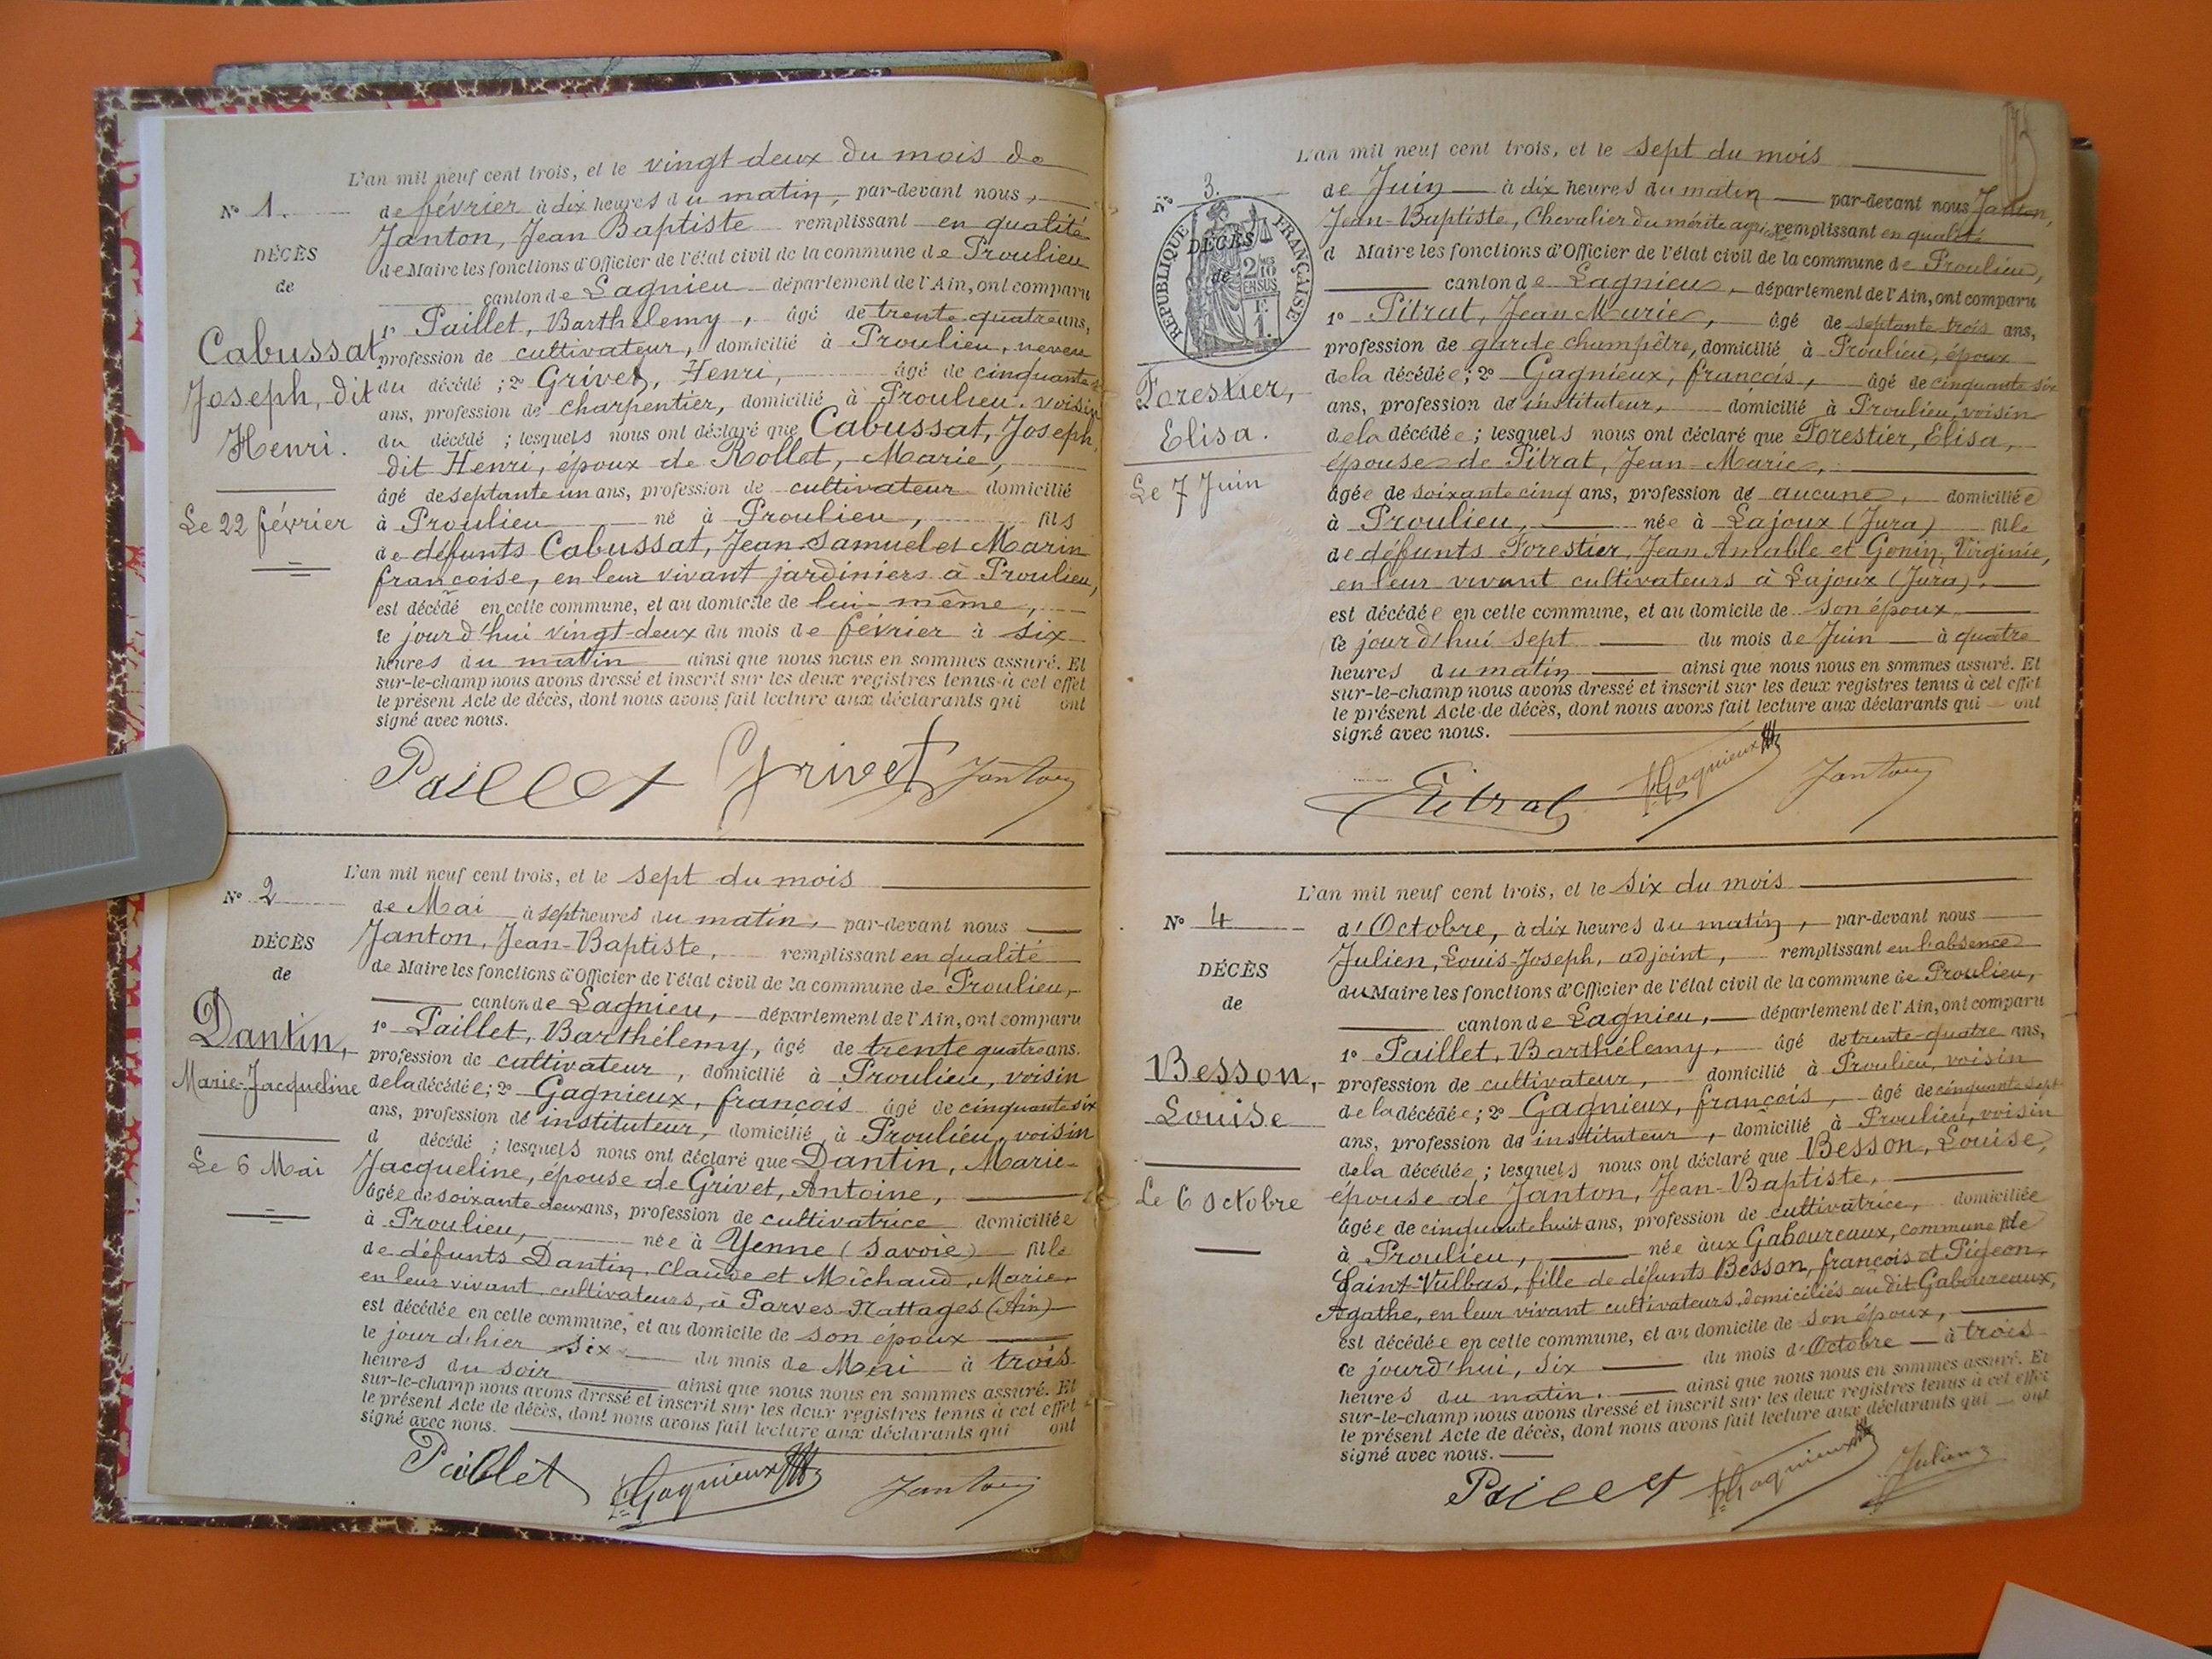 L'an mil neuf cent trois, et le vingt deux du mois de
N° 1. de février à dix heures du matin, par-devant nous,
Janton, Jean Baptiste remplissant en qualité
DÉCÈS
de Maire les fonctions d'Officier de l'état civil de la commune de Proulieu
de
canton de Lagnieu département de l'Ain, ont comparu
1° Paillet, Barthélemy, âgé de trente quatre ans,
Cabussat
profession de cultivateur, domicilié à Proulieu, neveu
Joseph, dit
du décédé ; 2° Grivet, Henri, âgé de cinquante
ans, profession de charpentier, domicilié à Proulieu, voisin
Henri.
du décédé ; lesquels nous ont déclaré que Cabussat, Joseph,
dit Henri, époux de Rollet, Marie,
âgé de septante un ans, profession de cultivateur domicilié
Le 22 février
à Proulieu né à Proulieu, fils
de défunts Cabussat, Jean-Samuel et Marin
francoise, en leur vivant jardiniers à Proulieu,
est décédé en cette commune, et au domicile de lui-même,
le jour d'hui vingt-deux du mois de février à six
heures du matin ainsi que nous nous en sommes assuré. Et
sur-le-champ nous avons dressé et inscrit sur les deux registres tenus à cet effet
le présent Acte de décès, dont nous avons fait lecture aux déclarants qui ont
signé avec nous.
Paillet Grivet Janton
L'an mil neuf cent trois, et le sept du mois
N° 2
de Mai à sept heures du matin, par-devant nous
Janton, Jean-Baptiste, remplissant en qualité
DÉCÈS
de Maire les fonctions d'Officier de l'état civil de la commune de Proulieu,
de
canton de Lagnieu, département de l'Ain, ont comparu
1° Paillet, Barthélemy, âgé de trente quatre ans.
Dantin,
profession de cultivateur, domicilié à Proulieu, voisin
Marie-Jacqueline
de la décédée ; 2° Gagnieux, françois âgé de cinquante six
ans, profession de instituteur, domicilié à Proulieu, voisin
d décédé ; lesquels nous ont déclaré que Dantin, Marie-
Le 6 Mai
Jacqueline, épouse de Grivet, Antoine,
âgée de soixante deux ans, profession de cultivatrice domiciliée
à Proulieu, née à Yenne (Savoie) fille
de défunts Dantin, Claude et Michaud, Marie
en leur vivant cultivateurs, à Parves-Nattages (Ain)
est décédée en cette commune, et au domicile de son époux
le jour d'hier six du mois de Mai à trois
heures du soir ainsi que nous nous en sommes assuré. Et
sur-le-champ nous avons dressé et inscrit sur les deux registres tenus à cet effet
le présent Acte de décès, dont nous avons fait lecture aux déclarants qui ont
signé avec nous.
Paillet Gagnieux Janton
L'an mil neuf cent trois, et le sept du mois
N° 3.
de Juin à dix heures du matin par-devant nous Janton,
Jean-Baptiste, Chevalier du mérite agricole remplissant en qualité
RÉPUBLIQUE FRANÇAISE
DÉCÈS
de
2/10 EN SUS
1 F.
d Maire les fonctions d'Officier de l'état civil de la commune de Proulieu,
canton de Lagnieu, département de l'Ain, ont comparu
1° Pitrat, Jean Marie, âgé de septante trois ans,
profession de garde champêtre, domicilié à Proulieu, époux
Forestier,
de la décédée ; 2° Gagnieux, françois, âgé de cinquante six
ans, profession de instituteur, domicilié à Proulieu, voisin
Elisa.
de la décédée ; lesquels nous ont déclaré que Forestier, Elisa,
épouse de Pitrat, Jean-Marie,
Le 7 Juin
âgée de soixante cinq ans, profession de aucune, domiciliée
à Proulieu, née à Lajoux (Jura) fille
de défunts Forestier, Jean Amable et Gonin, Virginie,
en leur vivant cultivateurs à Lajoux (Jura),
est décédée en cette commune, et au domicile de son époux
le jour d'hui sept du mois de Juin à quatre
heures du matin ainsi que nous nous en sommes assuré. Et
sur-le-champ nous avons dressé et inscrit sur les deux registres tenus à cet effet
le présent Acte de décès, dont nous avons fait lecture aux déclarants qui ont
signé avec nous.
Pitrat Gagnieux Janton
L'an mil neuf cent trois, et le six du mois
N° 4
d'Octobre, à dix heures du matin, par-devant nous
Julien, Louis-Joseph, adjoint, remplissant en l'absence
DÉCÈS
du Maire les fonctions d'Officier de l'état civil de la commune de Proulieu,
de
canton de Lagnieu, département de l'Ain, ont comparu
1° Paillet, Barthélemy, âgé de trente quatre ans,
Besson,
profession de cultivateur, domicilié à Proulieu, voisin
de la décédée ; 2° Gagnieux, françois, âgé de cinquante sept
Louise
ans, profession de instituteur, domicilié à Proulieu, voisin
de la décédée ; lesquels nous ont déclaré que Besson, Louise,
Le 6 Octobre
épouse de Janton, Jean-Baptiste,
âgée de cinquante huit ans, profession de cultivatrice, domiciliée
à Proulieu, née aux Gaboureaux, commune de
Saint-Vulbas, fille de défunts Besson, françois et Pigeon,
Agathe, en leur vivant cultivateurs, domiciliés au dit Gaboureaux,
est décédée en cette commune, et au domicile de son époux,
ce jourd'hui, six du mois d'Octobre à trois
heures du matin. ainsi que nous nous en sommes assuré. Et
sur-le-champ nous avons dressé et inscrit sur les deux registres tenus à cet effet
le présent Acte de décès, dont nous avons fait lecture aux déclarants qui ont
signé avec nous.
Paillet Gagnieux Julien